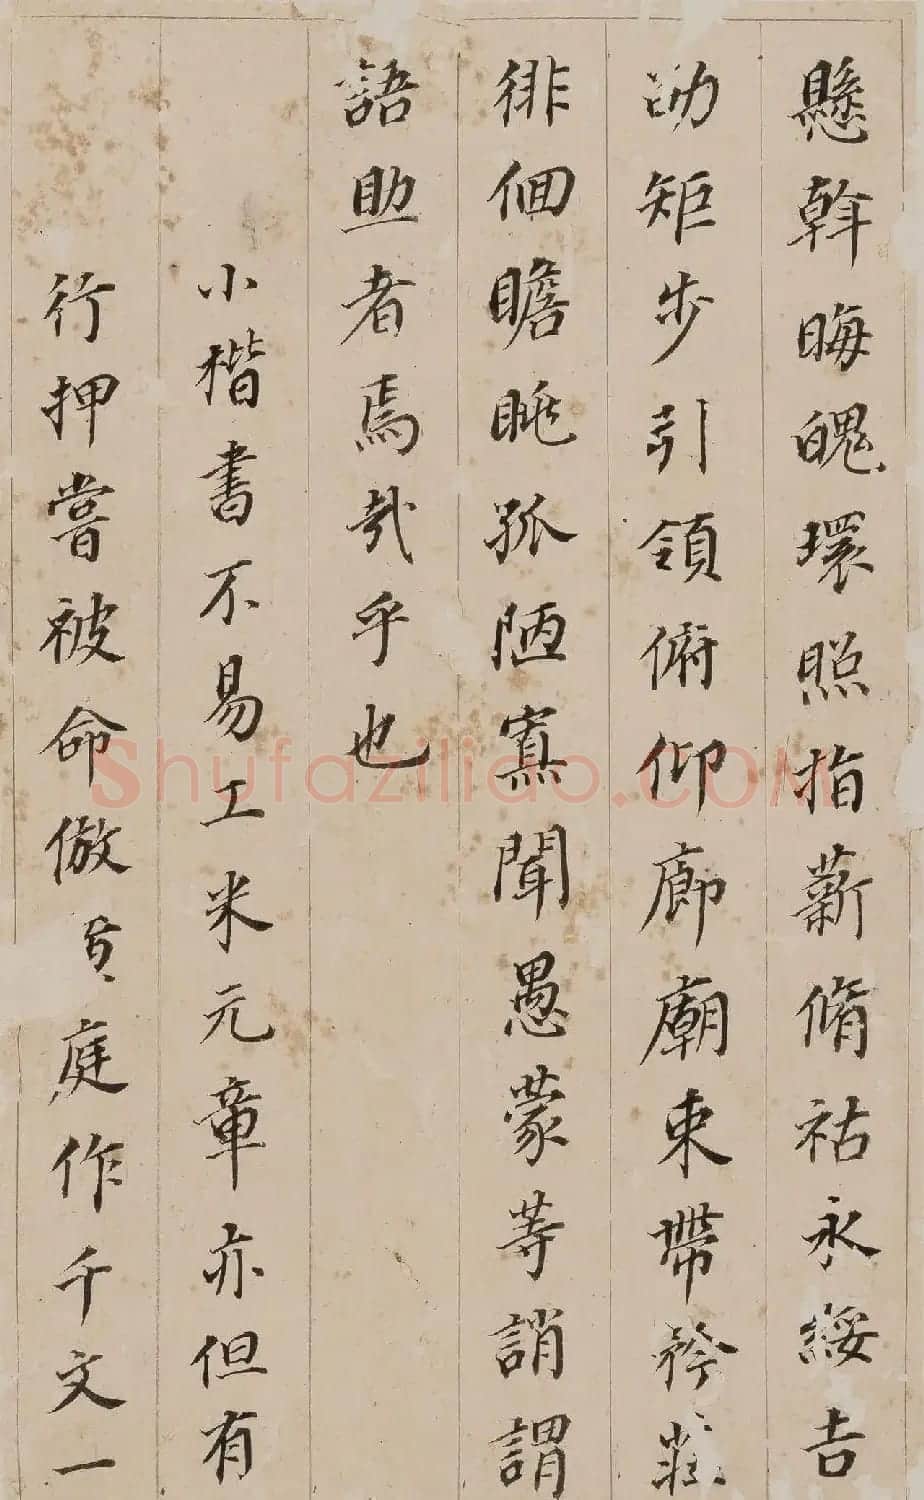 懸斡晦魄環照指薪脩祜永綏吉
劭矩步引領俯仰廊廟束帶矜莊
徘徊瞻眺孤陋寡聞愚蒙等誚謂
語助者焉哉乎也
小楷書不易工米元章亦但有
行押嘗被命倣黃庭作千文一
Shufazilido.COM